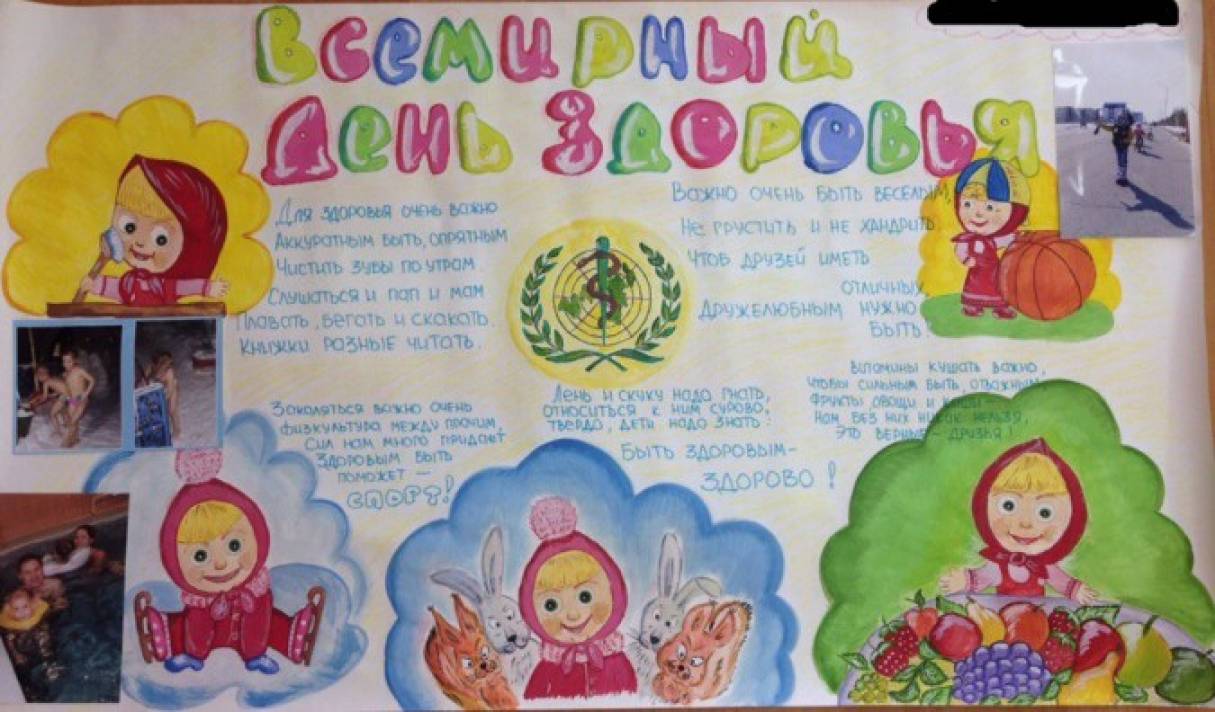 Всемирный
День Здоровья
Для здоровья очень важно
Аккуратным быть, опрятным
Чистить зубы по утрам
Слушаться и пап и мам
Плавать, бегать и скакать.
Книжки разные читать.
Важно очень быть веселым,
Не грустить и не хандрить.
Чтоб друзей иметь
отличных,
Дружелюбным нужно
быть!
Закаляться важно очень
физкультура между прочим,
Сил нам много придаёт
Здоровым быть
поможет —
СПОРТ!
Лень и скуку надо гнать,
относиться к ним сурово.
твердо, дети надо знать:
Быть здоровым-
ЗДОРОВО!
Витамины кушать важно,
чтобы сильным быть, отважным
Фрукты овощи и каши —
Нам без них никак нельзя,
Это верные - друзья!